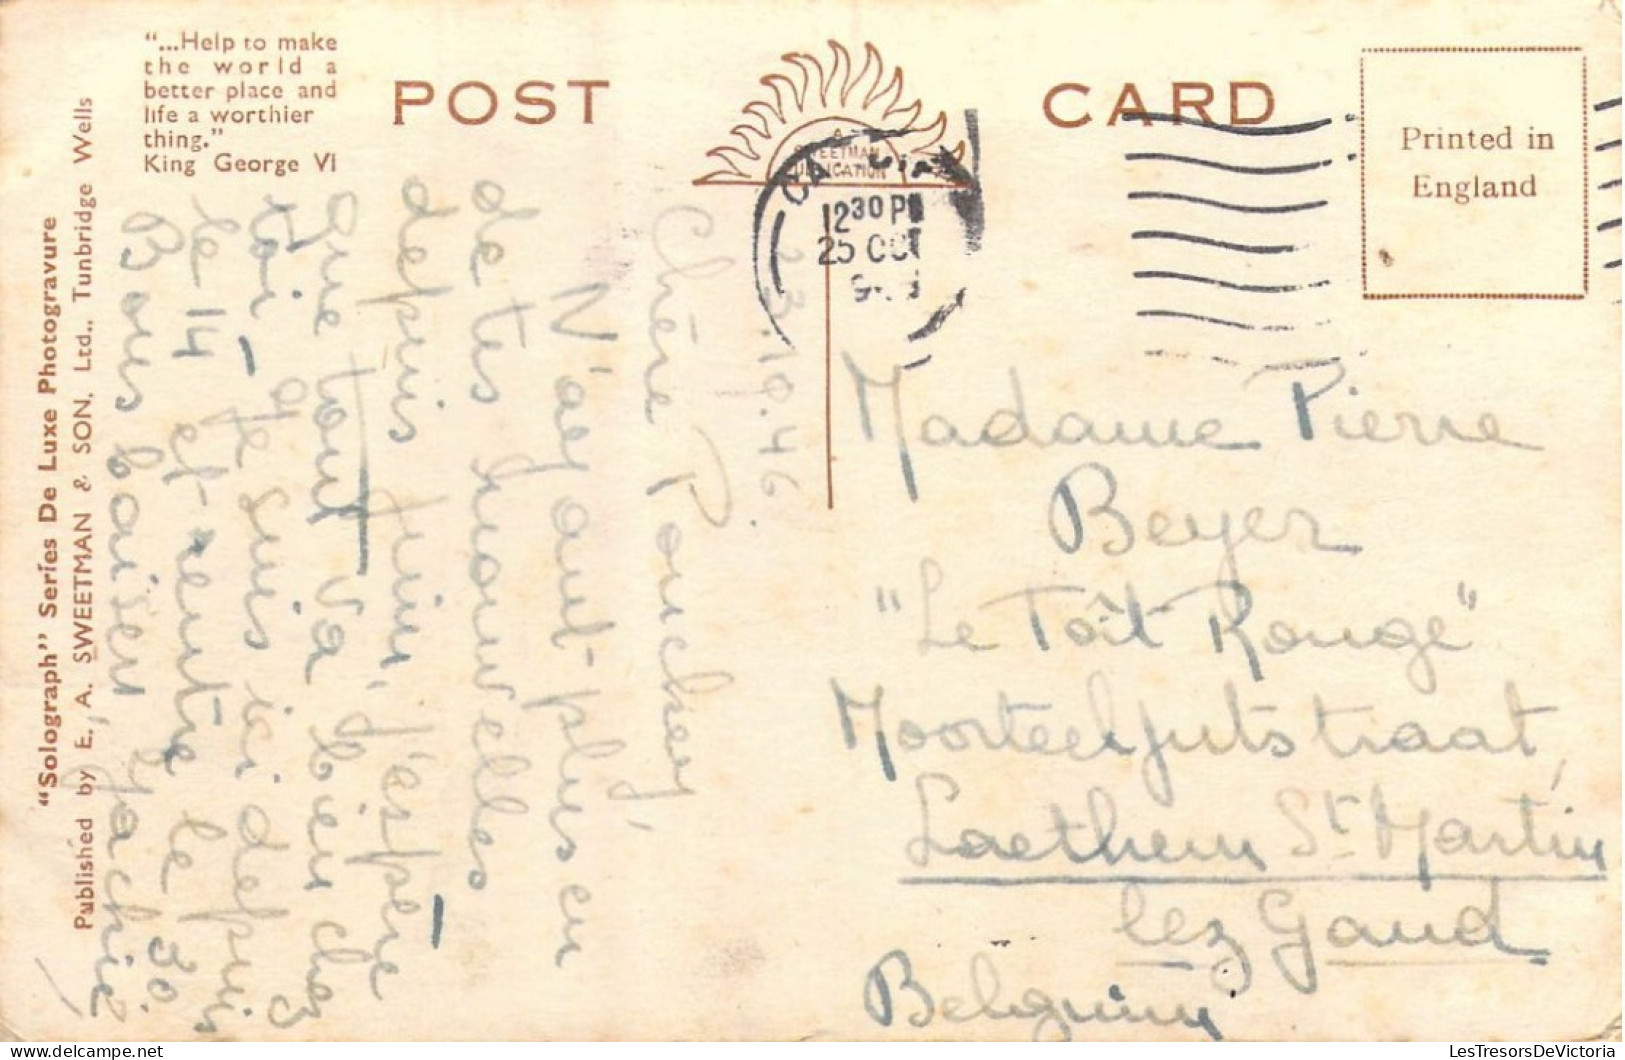 "...Help to make
the world a
better place and
life a worthier
thing."
King George VI
POST CARD
A
SWEETMAN
PUBLICATION
Printed in
England
"Solograph" Series De Luxe Photogravure
Published by E. A. SWEETMAN & SON, Ltd., Tunbridge Wells
12 30 P
25 OC
23.10.46.
Chère
N'ayant plus eu
de tes nouvelles
depuis juin, j'espère
que tout va bien chez
toi - Je suis ici depuis
le 14 et rentre le 30.
Bons baisers
Madame Pierre
Beyer
"Le Toît Rouge"
Laethem St Martin
lez Gand
Belgium
LesTresorsDeVictoria